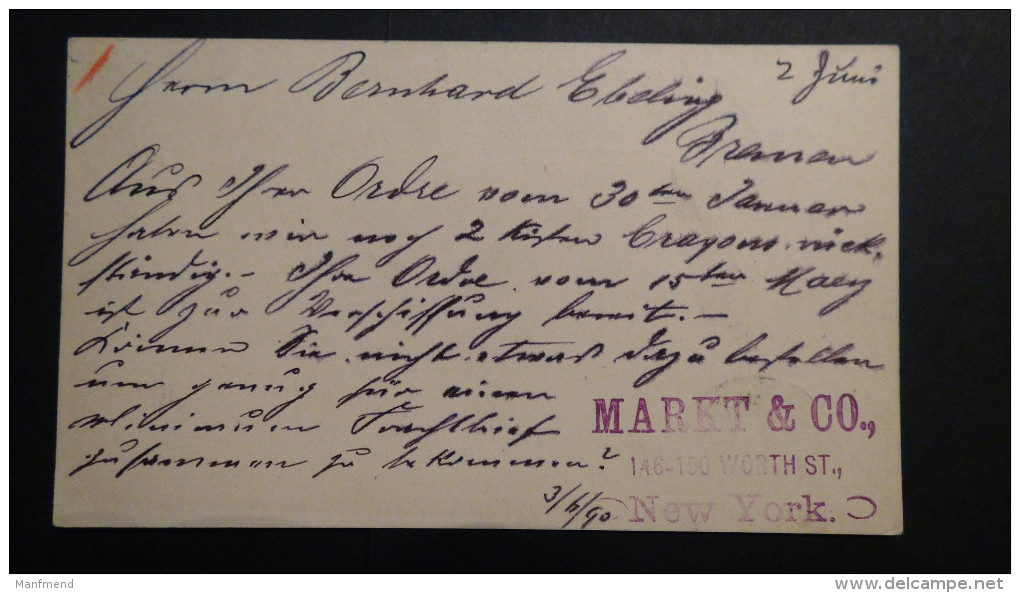 2 Juni
Herrn Bernhard Ebeling
Bremen
Aus Ihrer Ordre vom 30ten Januar
haben wir noch 2 Kisten Crayons rück-
ständig.- Ihre Ordre vom 15ten Maey
ist zur Verschiffung bereit.-
Können Sie nicht etwas dazu bestellen
um genug für einen
Minimum Frachtbrief
zusammen zu bekommen?
3/6/90
MARKT & CO.,
146-150 WORTH ST.,
New York.
Manfmend
www.delcampe.net